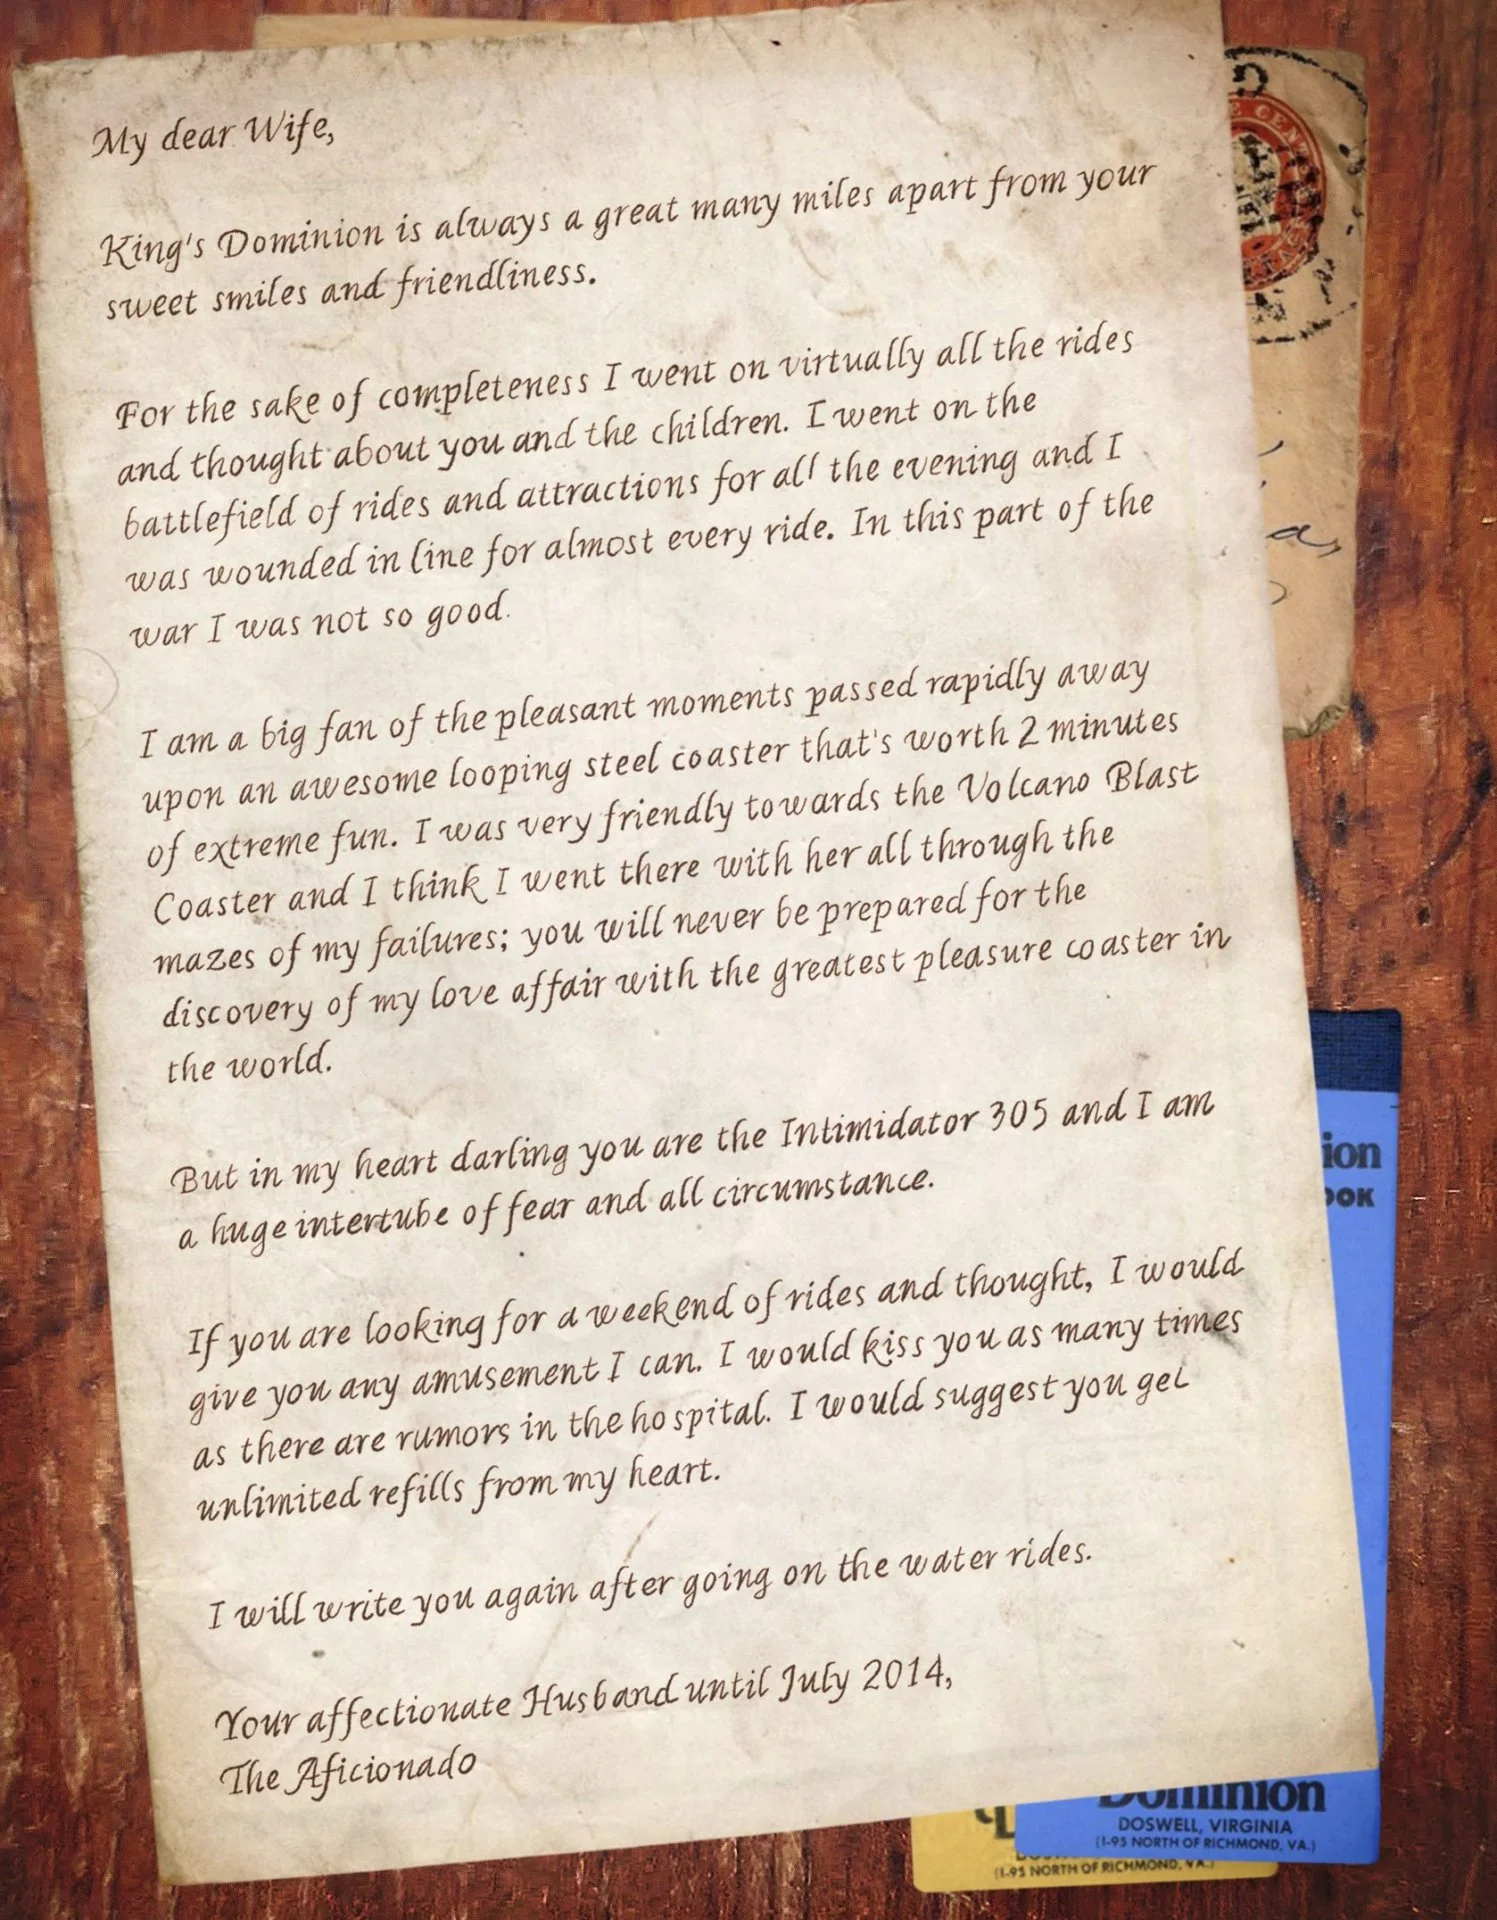 My dear Wife,
King's Dominion is always a great many miles apart from your
sweet smiles and friendliness.
For the sake of completeness I went on virtually all the rides
and thought about you and the children. I went on the
battlefield of rides and attractions for all the evening and I
was wounded in line for almost every ride. In this part of the
war I was not so good.
I am a big fan of the pleasant moments passed rapidly away
upon an awesome looping steel coaster that's worth 2 minutes
of extreme fun. I was very friendly towards the Volcano Blast
Coaster and I think I went there with her all through the
mazes of my failures; you will never be prepared for the
discovery of my love affair with the greatest pleasure coaster in
the world.
But in my heart darling you are the Intimidator 305 and I am
a huge intertube of fear and all circumstance.
If you are looking for a weekend of rides and thought, I would
give you any amusement I can. I would kiss you as many times
as there are rumors in the hospital. I would suggest you get
unlimited refills from my heart.
I will write you again after going on the water rides.
Your affectionate Husband until July 2014,
The Aficionado
ion
OOK
Dominion
DOSWELL, VIRGINIA
(I-95 NORTH OF RICHMOND, VA.)
(I-95 NORTH OF RICHMOND, VA.)